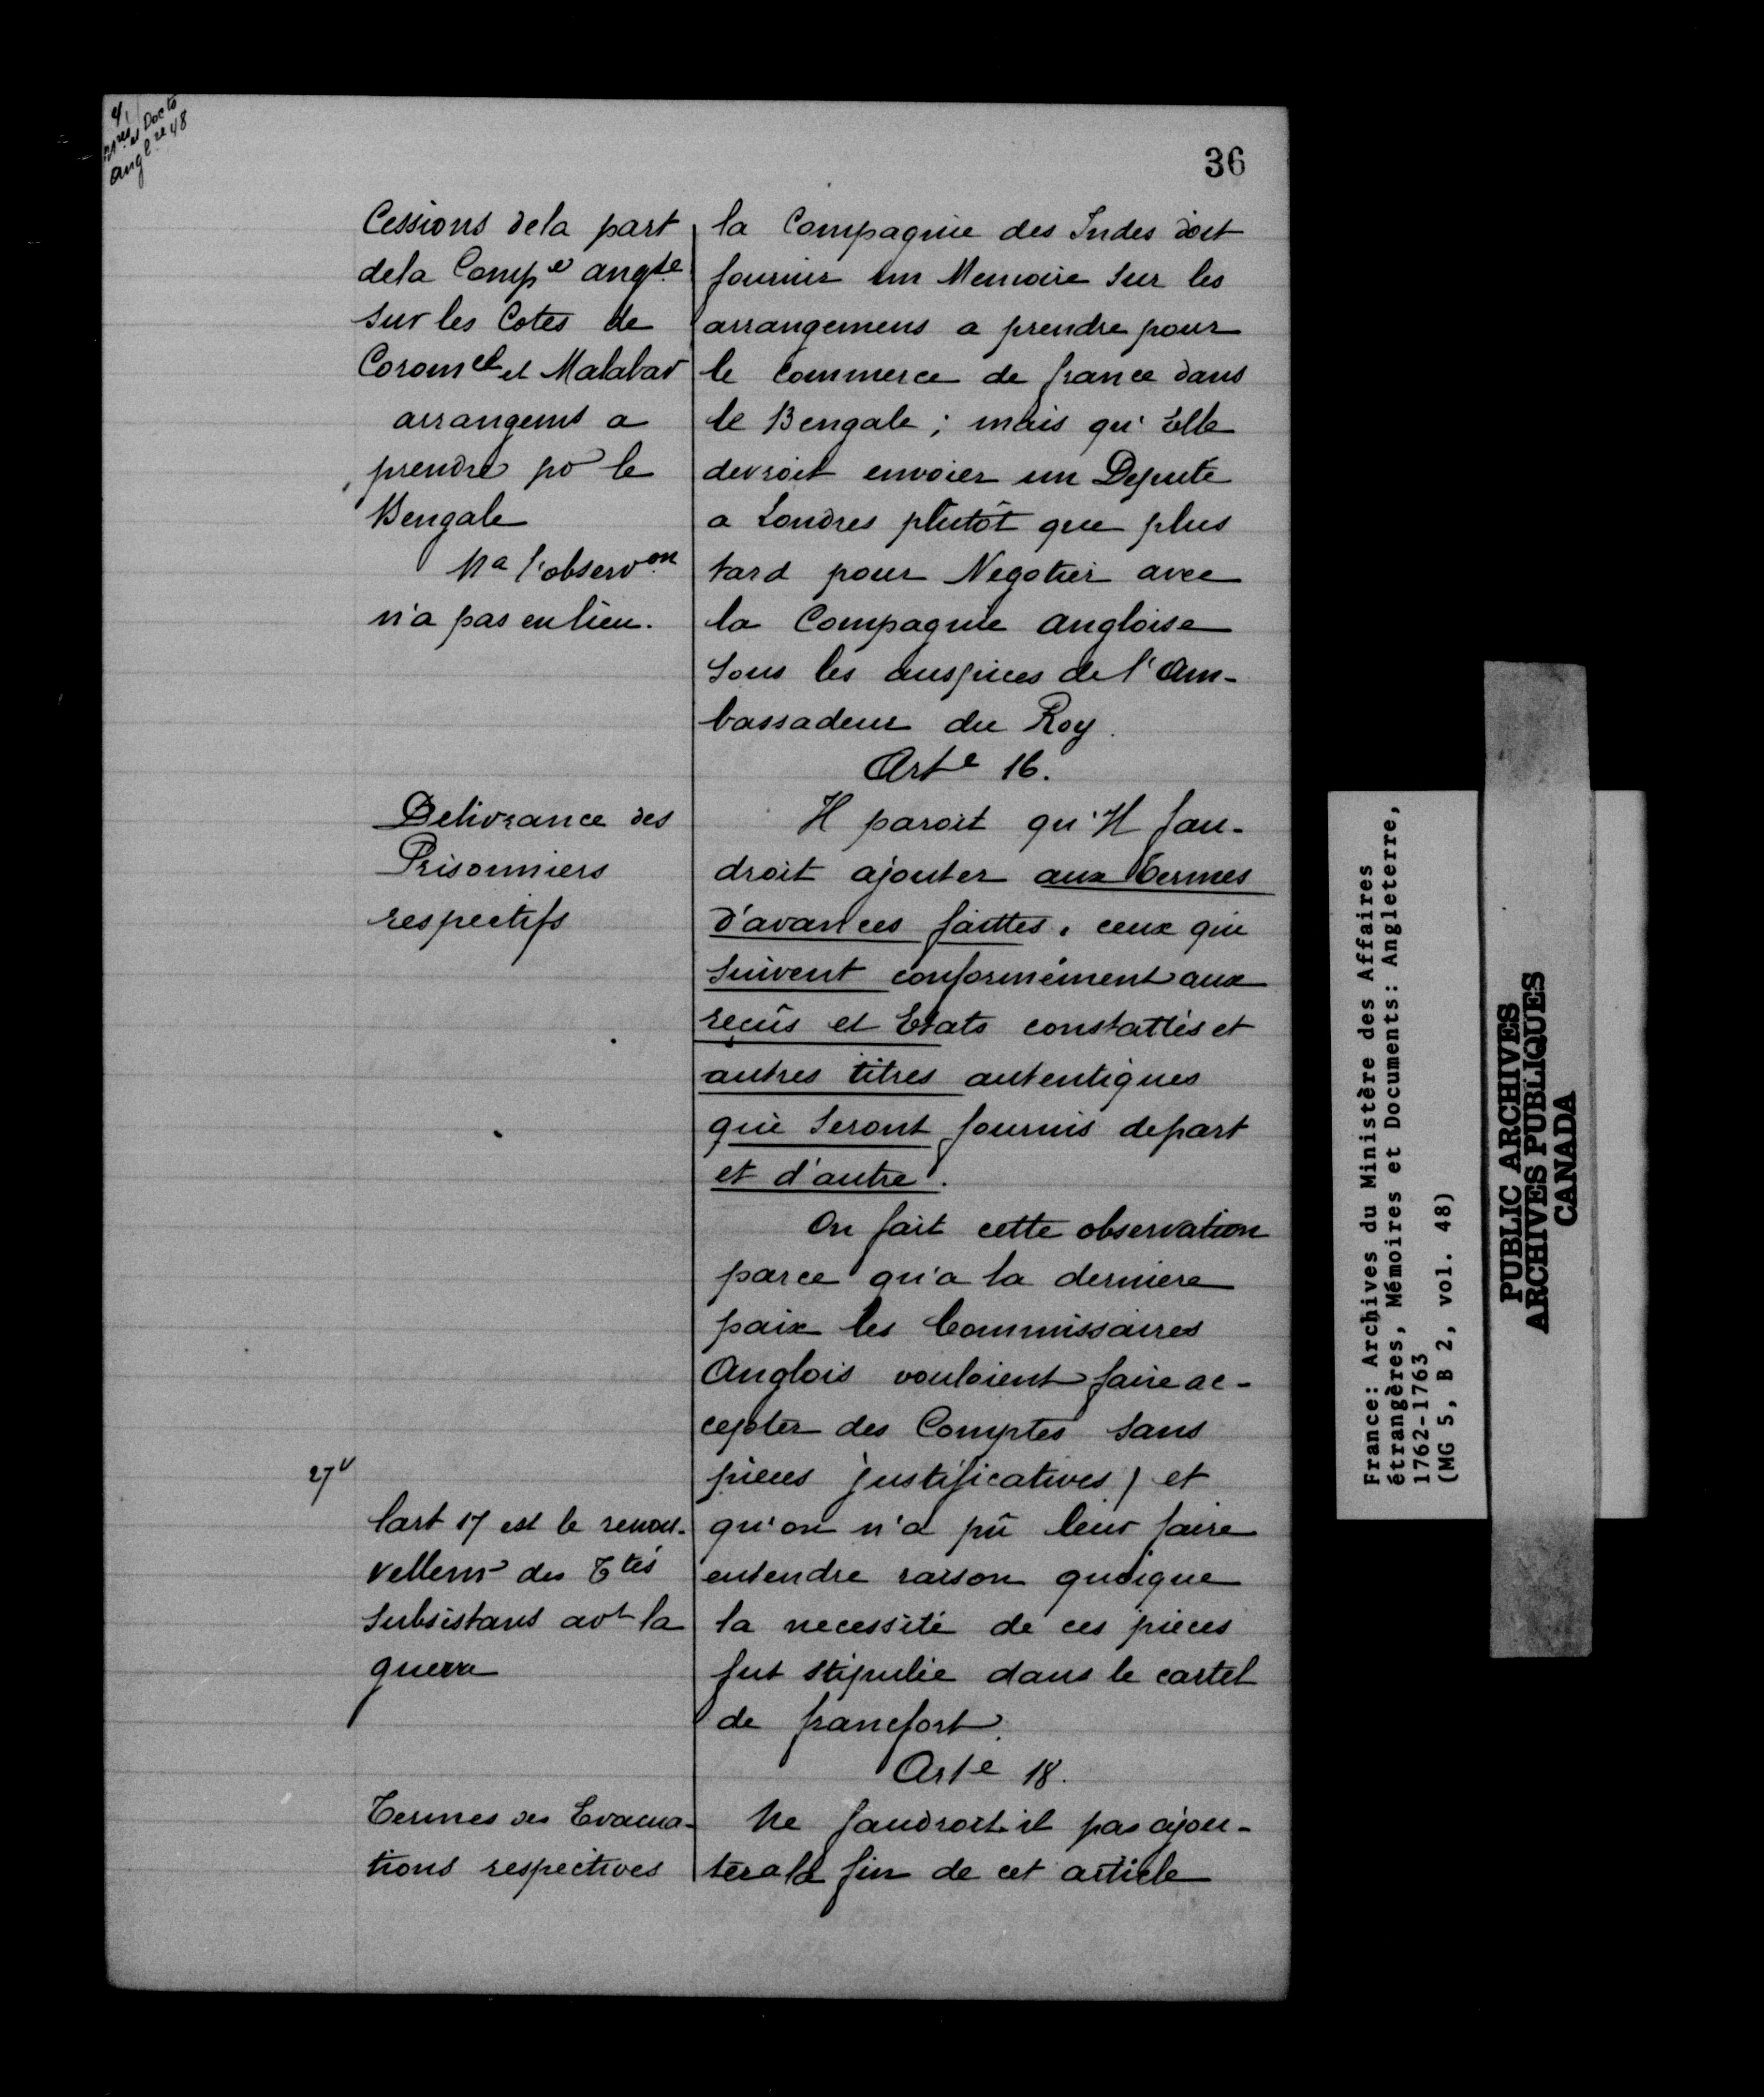 4/
Mres et Docts
Anglre 48
36
Cessions dela part
dela Compe angse
sur les Cotes de
Coromel et Malabar
arrangems a
prendre po le
Bengale
Na l'observon
n'a pas eu lieu.
la Compagnie des Indes doit
fournir un Memoire sur les
arrangemens a prendre pour
le commerce de france dans
le Bengale ; mais qu'Elle
devroit envoier un Depute
a Londres plutôt que plus
tard pour Negotier avec
la Compagnie angloise
Sous les auspices de l'Am-
bassadeur du Roy.
Arte 16.
Delivrance des
Prisonniers
respectifs
Il paroit qu'Il fau-
droit ajouter aux termes
d'avances faittes, ceux qui
suivent conformément aux
reçûs et Etats constattés et
autres titres autentiques
qui seront fournis depart
et d'autre.
On fait cette observation
parce qu'a la derniere
paix les Commissaires
Anglois vouloient faire ac-
cepter des Comptes sans
pieces justificatives, et
qu'on n'a pû leur faire
entendre raison quoique
la necessité de ces pieces
fut stipulée dans le cartel
de francfort.
27v
lart 17 est le renou-
vellemt des Ttés
subsistans avt la
guerre
Arte 18.
Termes des Evacua-
tions respectives
Ne faudroit-il pas ajou-
ter a la fin de cet article
France: Archives du Ministère des Affaires
étrangères, Mémoires et Documents: Angleterre,
1762-1763
(MG 5, B 2, vol. 48)
PUBLIC ARCHIVES
ARCHIVES PUBLIQUES
CANADA